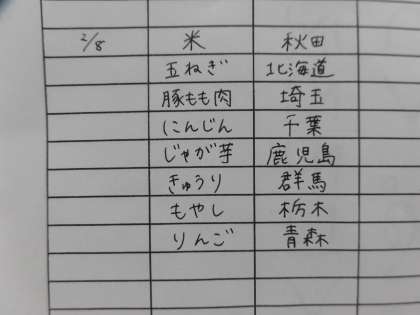 2/8 米 秋田
五ねぎ 北海道
豚もも肉 埼玉
にんじん 千葉
じゃが芋 鹿児島
きゅうり 群馬
もやし 栃木
りんご 青森